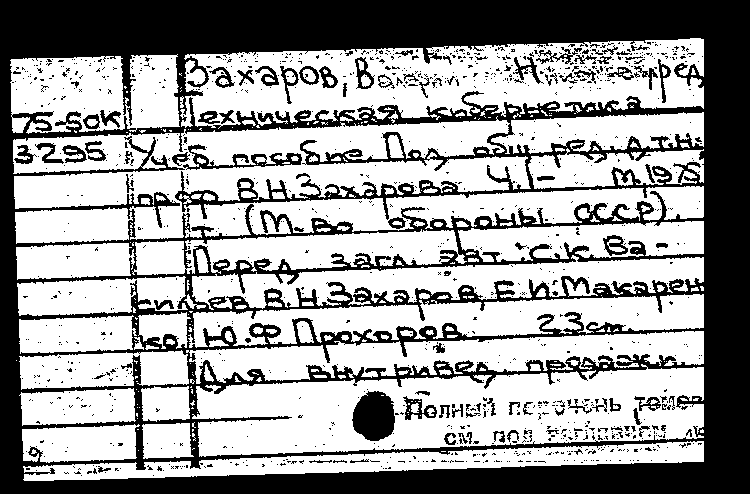 Захаров, В Н ред
75-50к Техническая кибернетика
3295 Учеб. пособие. Под общ ред. д.т.н.
проф В.Н.Захарова. Ч.1- М.1975
т. (М-во обороны СССР).
Перед загл. авт.: С.К. Ва-
сильев, В.Н.Захаров, Е.И.Макарен-
ко, Ю.Ф Прохоров. 23 см.
Для внутривед. продажи.
Полный перечень томов
см. под заглавием